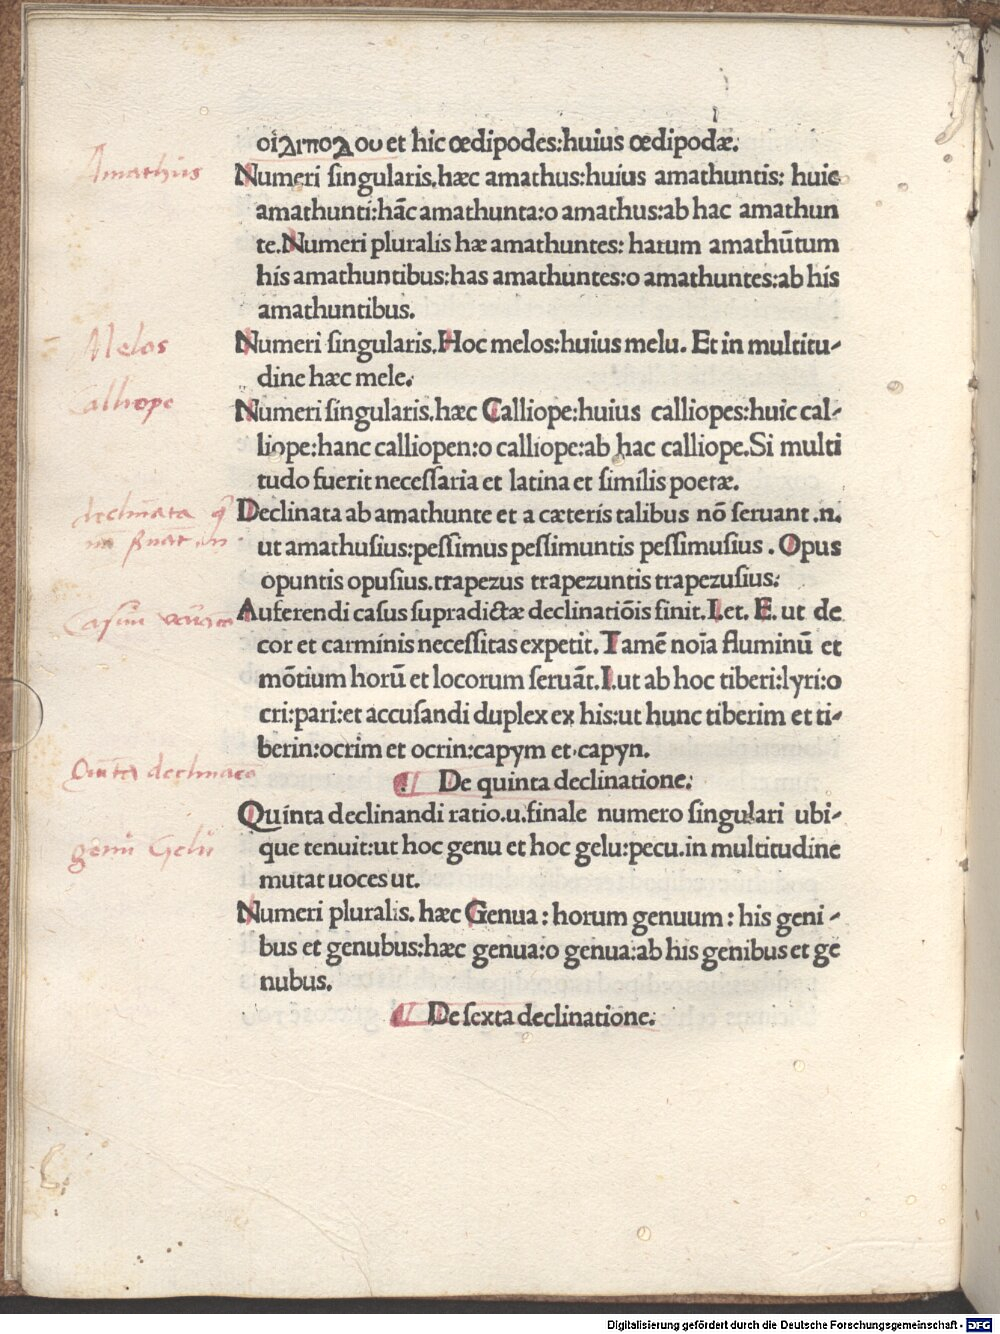 οιδιποδου et hic œdipodes:huius œdipodæ.
Amathus
Numeri singularis.hæc amathus:huius amathuntis: huic
amathunti:hāc amathunta:o amathus:ab hac amathun
te.Numeri pluralis hæ amathuntes: harum amathūtum
his amathuntibus:has amathuntes:o amathuntes:ab his
amathuntibus.
Melos
Numeri singularis.Hoc melos:huius melu. Et in multitu-
dine hæc mele.
Calliope
Numeri singularis.hæc Calliope:huius calliopes:huic cal-
liope:hanc calliopen:o calliope:ab hac calliope.Si multi
tudo fuerit necessaria et latina et similis poetæ.
declinata
Declinata ab amathunte et a cæteris talibus nō seruant .n.
ut amathusius:pessimus pessimuntis pessimusius . Opus
opuntis opusius.trapezus trapezuntis trapezusius:
Auferendi casus supradictæ declinatiōis finit.I.et. E. ut de
cor et carminis necessitas expetit. Tamē noīa fluminū et
mōtium horū et locorum seruāt.I.ut ab hoc tiberi:lyri:o
cri:pari:et accusandi duplex ex his:ut hunc tiberim et ti-
berin:ocrim et ocrin:capym et capyn.
Quīta declinatō
De quinta declinatione:
Quinta declinandi ratio.u.finale numero singulari ubi-
que tenuit:ut hoc genu et hoc gelu:pecu.in multitudine
genu Gelu
mutat uoces ut.
Numeri pluralis. hæc Genua : horum genuum : his geni -
bus et genubus:hæc genua:o genua:ab his genibus et ge
nubus.
De sexta declinatione:
Digitalisierung gefördert durch die Deutsche Forschungsgemeinschaft - DFG